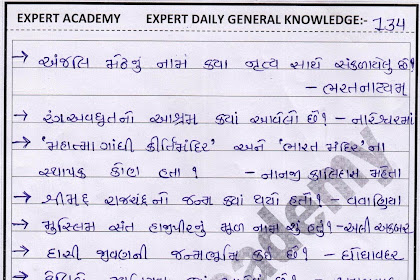 EXPERT ACADEMY EXPERT DAILY GENERAL KNOWLEDGE:- 734
→ અંજલિ મેઢનું નામ કયા નૃત્ય સાથે સંકળાયેલું છે?
- ભરતનાટ્યમ્
→ રંગઅવધૂતનો આશ્રમ ક્યાં આવેલો છે? - નારેશ્વરમાં
→ 'મહાત્મા ગાંધી કીર્તિમંદિર' અને 'ભારત મંદિર'ના
સ્થાપક કોણ હતા? - નાનજી કાલિદાસ મહેતા
→ શ્રીમદ્ રાજચંદ્રનો જન્મ ક્યાં થયો હતો? - વવાણિયા
→ મુસ્લિમ સંત હાજીપીરનું મૂળ નામ શું હતું? - અલી અકબર
→ દાસી જીવણની જન્મભૂમિ કઈ છે? - ઘોઘાવદર